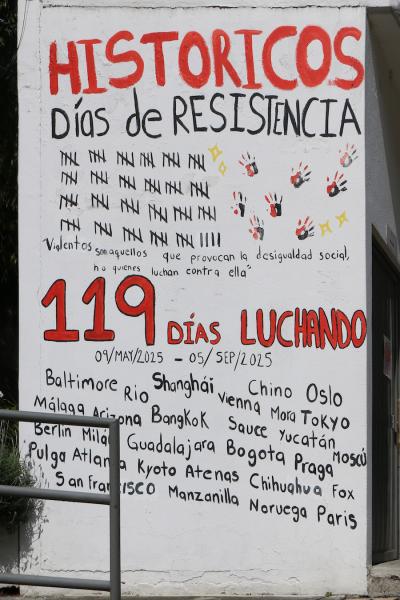 HISTORICOS
Días de RESISTENCIA
"Violentos son aquellos que provocan la desigualdad social,
no quienes luchan contra ella"
119 DÍAS LUCHANDO
09/MAY/2025 - 05/SEP/2025
Baltimore Rio Shanghái Chino Oslo
Málaga Arizona Bangkok Vienna Mora Tokyo
Berlin Milán Guadalajara Sauce Yucatán Moscú
Pulga Atlanta Kyoto Atenas Bogota Praga
San Francisco Manzanilla Chihuahua Fox
Noruega Paris